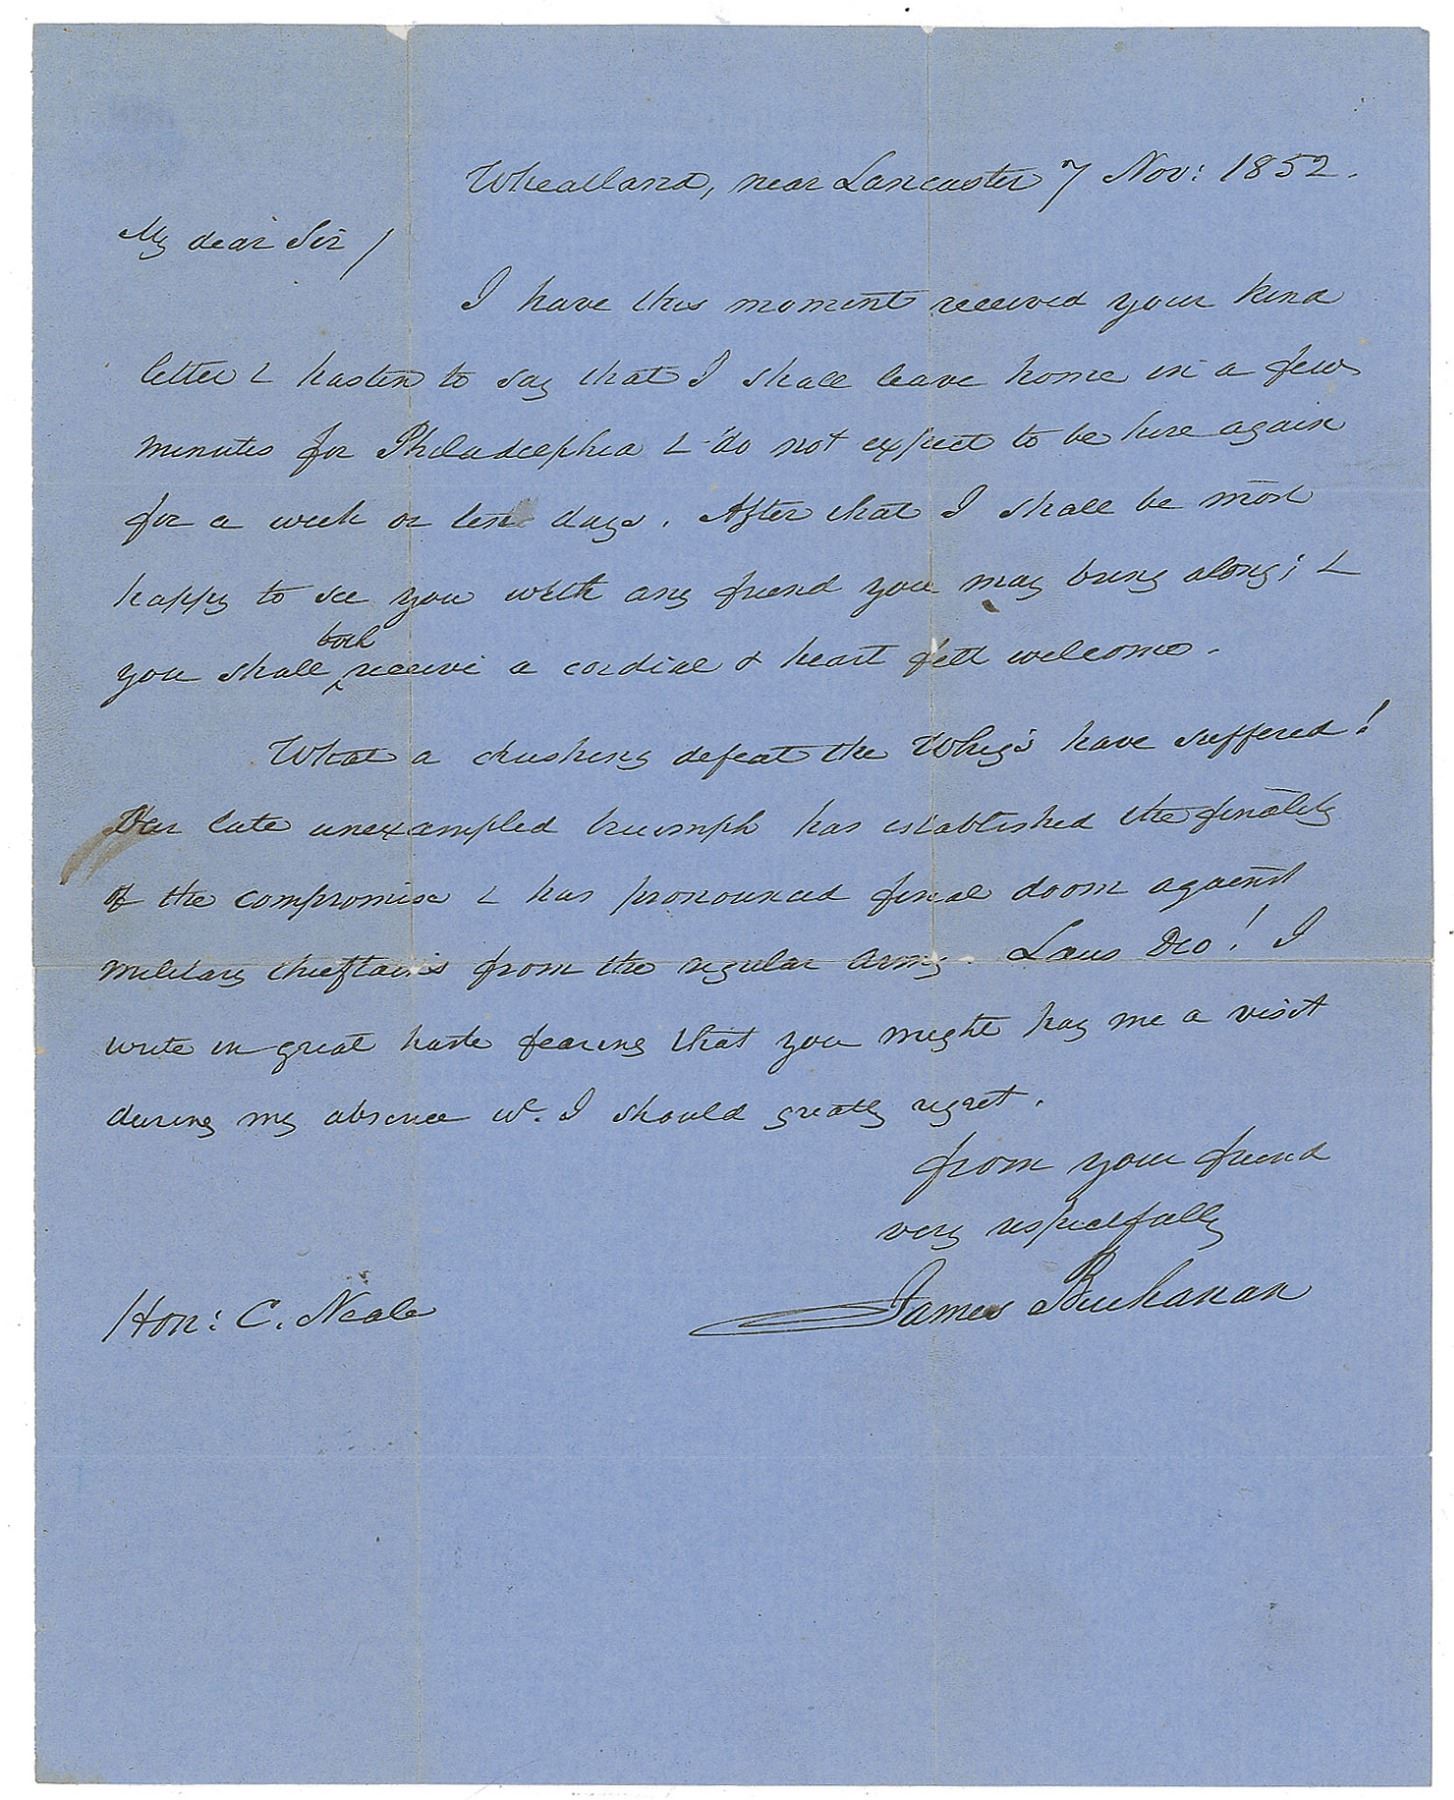 Wheatland, near Lancaster 7 Nov: 1852.
My dear Sir/
I have this moment received your kind
letter & hasten to say that I shall leave home in a few
minutes for Philadelphia & do not expect to be here again
for a week or ten days. After that I shall be most
happy to see you with any friend you may bring along; &
both
you shall ^ receive a cordial & heart felt welcome.
What a crushing defeat the Whigs have suffered!
Our late unexampled triumph has established the finality
of the compromise & has pronounced final doom against
military chieftains from the regular army. Laus Deo! I
write in great haste fearing that you might pay me a visit
during my absence wh. I should greatly regret.
from your friend
very respectfully
James Buchanan
Hon: C. Neale